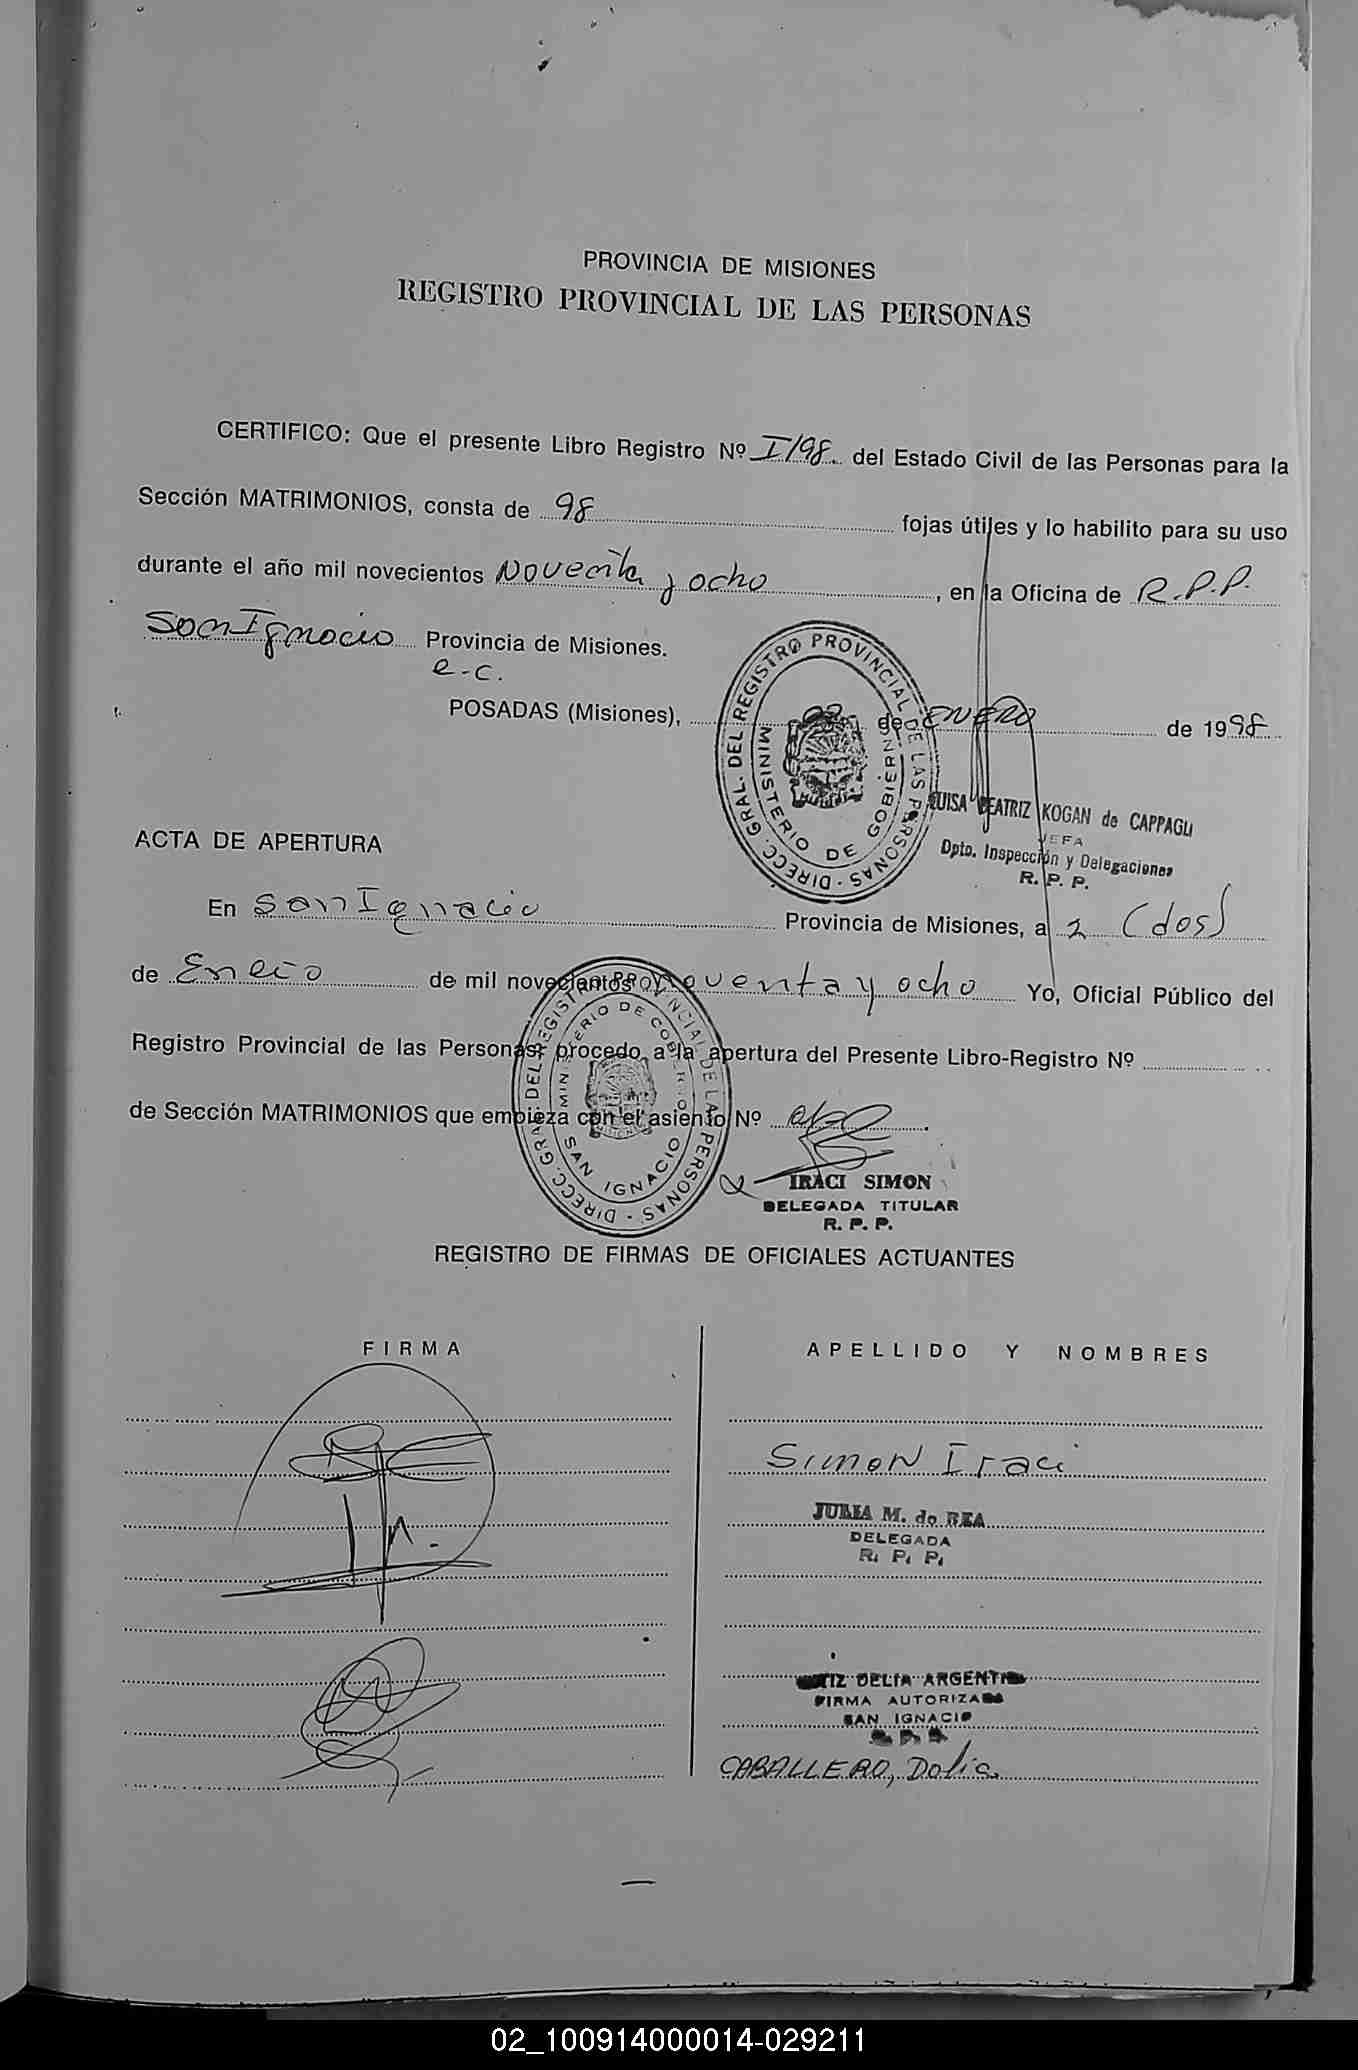 PROVINCIA DE MISIONES
REGISTRO PROVINCIAL DE LAS PERSONAS
CERTIFICO: Que el presente Libro Registro Nº I/98 del Estado Civil de las Personas para la
Sección MATRIMONIOS, consta de 98 fojas útiles y lo habilito para su uso
durante el año mil novecientos Noventa y ocho, en la Oficina de R.P.P.
San Ignacio Provincia de Misiones.
e-c.
POSADAS (Misiones), 02 de ENERO de 1998
DIRECC. GRAL. DEL REGISTRO PROVINCIAL DE LAS PERSONAS
MINISTERIO DE GOBIERNO
LUISA BEATRIZ KOGAN de CAPPAGLI
JEFA
Dpto. Inspección y Delegaciones
R. P. P.
ACTA DE APERTURA
En San Ignacio Provincia de Misiones, a 2 (dos)
de Enero de mil novecientos noventa y ocho Yo, Oficial Público del
Registro Provincial de las Personas, procedo a la apertura del Presente Libro-Registro Nº
de Sección MATRIMONIOS que empieza con el asiento Nº
DIRECC. GRAL. DEL REGISTRO PROVINCIAL DE LAS PERSONAS
MINISTERIO DE GOBIERNO
SAN IGNACIO
IRACI SIMON
DELEGADA TITULAR
R. P. P.
REGISTRO DE FIRMAS DE OFICIALES ACTUANTES
FIRMA
APELLIDO Y NOMBRES
Simon Iraci
JULIA M. de REA
DELEGADA
R. P. P.
DELIA ARGENTINA
FIRMA AUTORIZADA
SAN IGNACIO
R. P. P.
CABALLERO, Delia
02_100914000014-029211